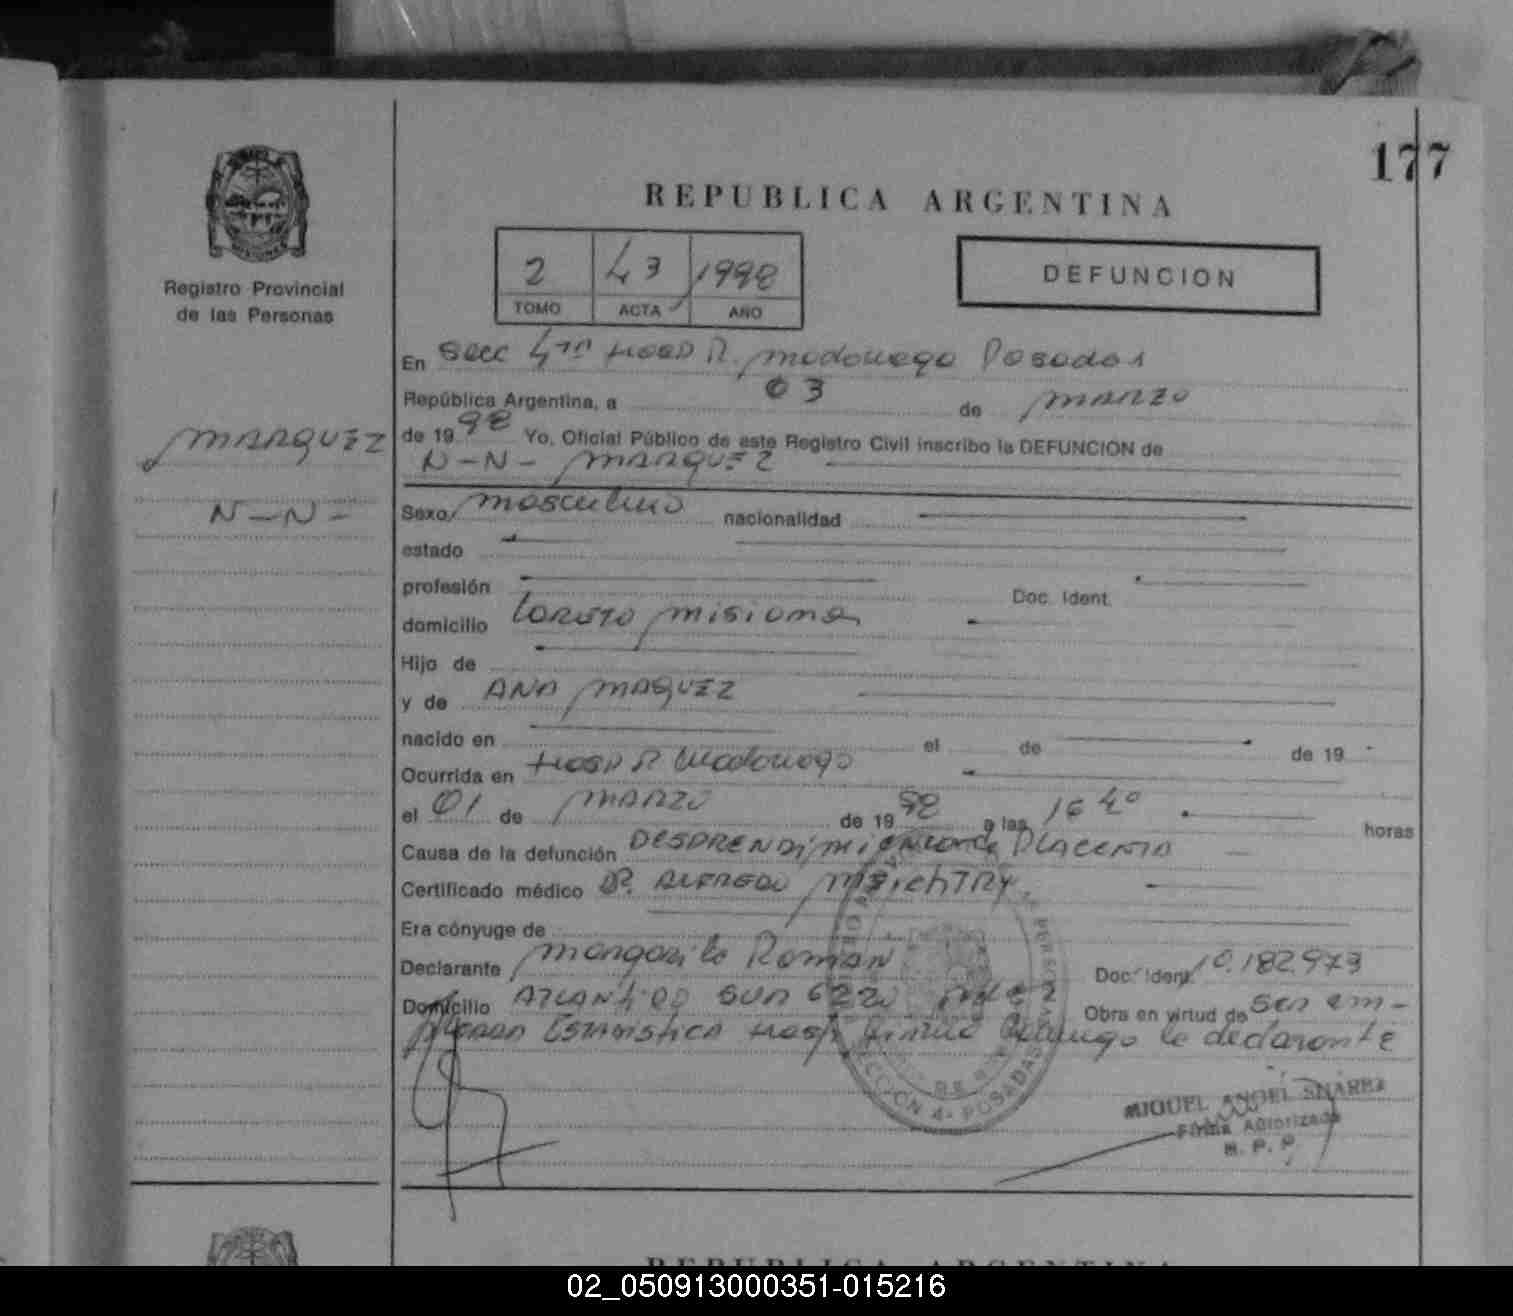 177
REPUBLICA ARGENTINA
Registro Provincial
de las Personas
2 43 1998
TOMO ACTA AÑO
DEFUNCION
En Secc 4ta Hosp R. Madariaga Posadas
República Argentina, a 03 de MARZO
de 1998 Yo, Oficial Público de este Registro Civil inscribo la DEFUNCION de
MARQUEZ
N-N- MARQUEZ
N-N-
Sexo masculino nacionalidad
estado
profesión Doc. Ident.
domicilio Loreto Misiones
Hijo de
y de ANA MAQUEZ
nacido en el de de 19
Ocurrida en Hosp R Madariaga
el 01 de MARZO de 1998 a las 16 40 horas
Causa de la defunción DESPRENDIMIENTO de PLACENTA
Certificado médico DR. ALFREDO
Era cónyuge de
Declarante Margarita Roman Doc. Ident. 10.182.973
Domicilio ATLANTIDA SUR 6220 Obra en virtud de ser em-
ESTADISTICA Hosp la declarante
SECCION 4a POSADAS
MIGUEL ANGEL SUAREZ
Firma Autorizada
R. P. P.
REPUBLICA ARGENTINA
02_050913000351-015216